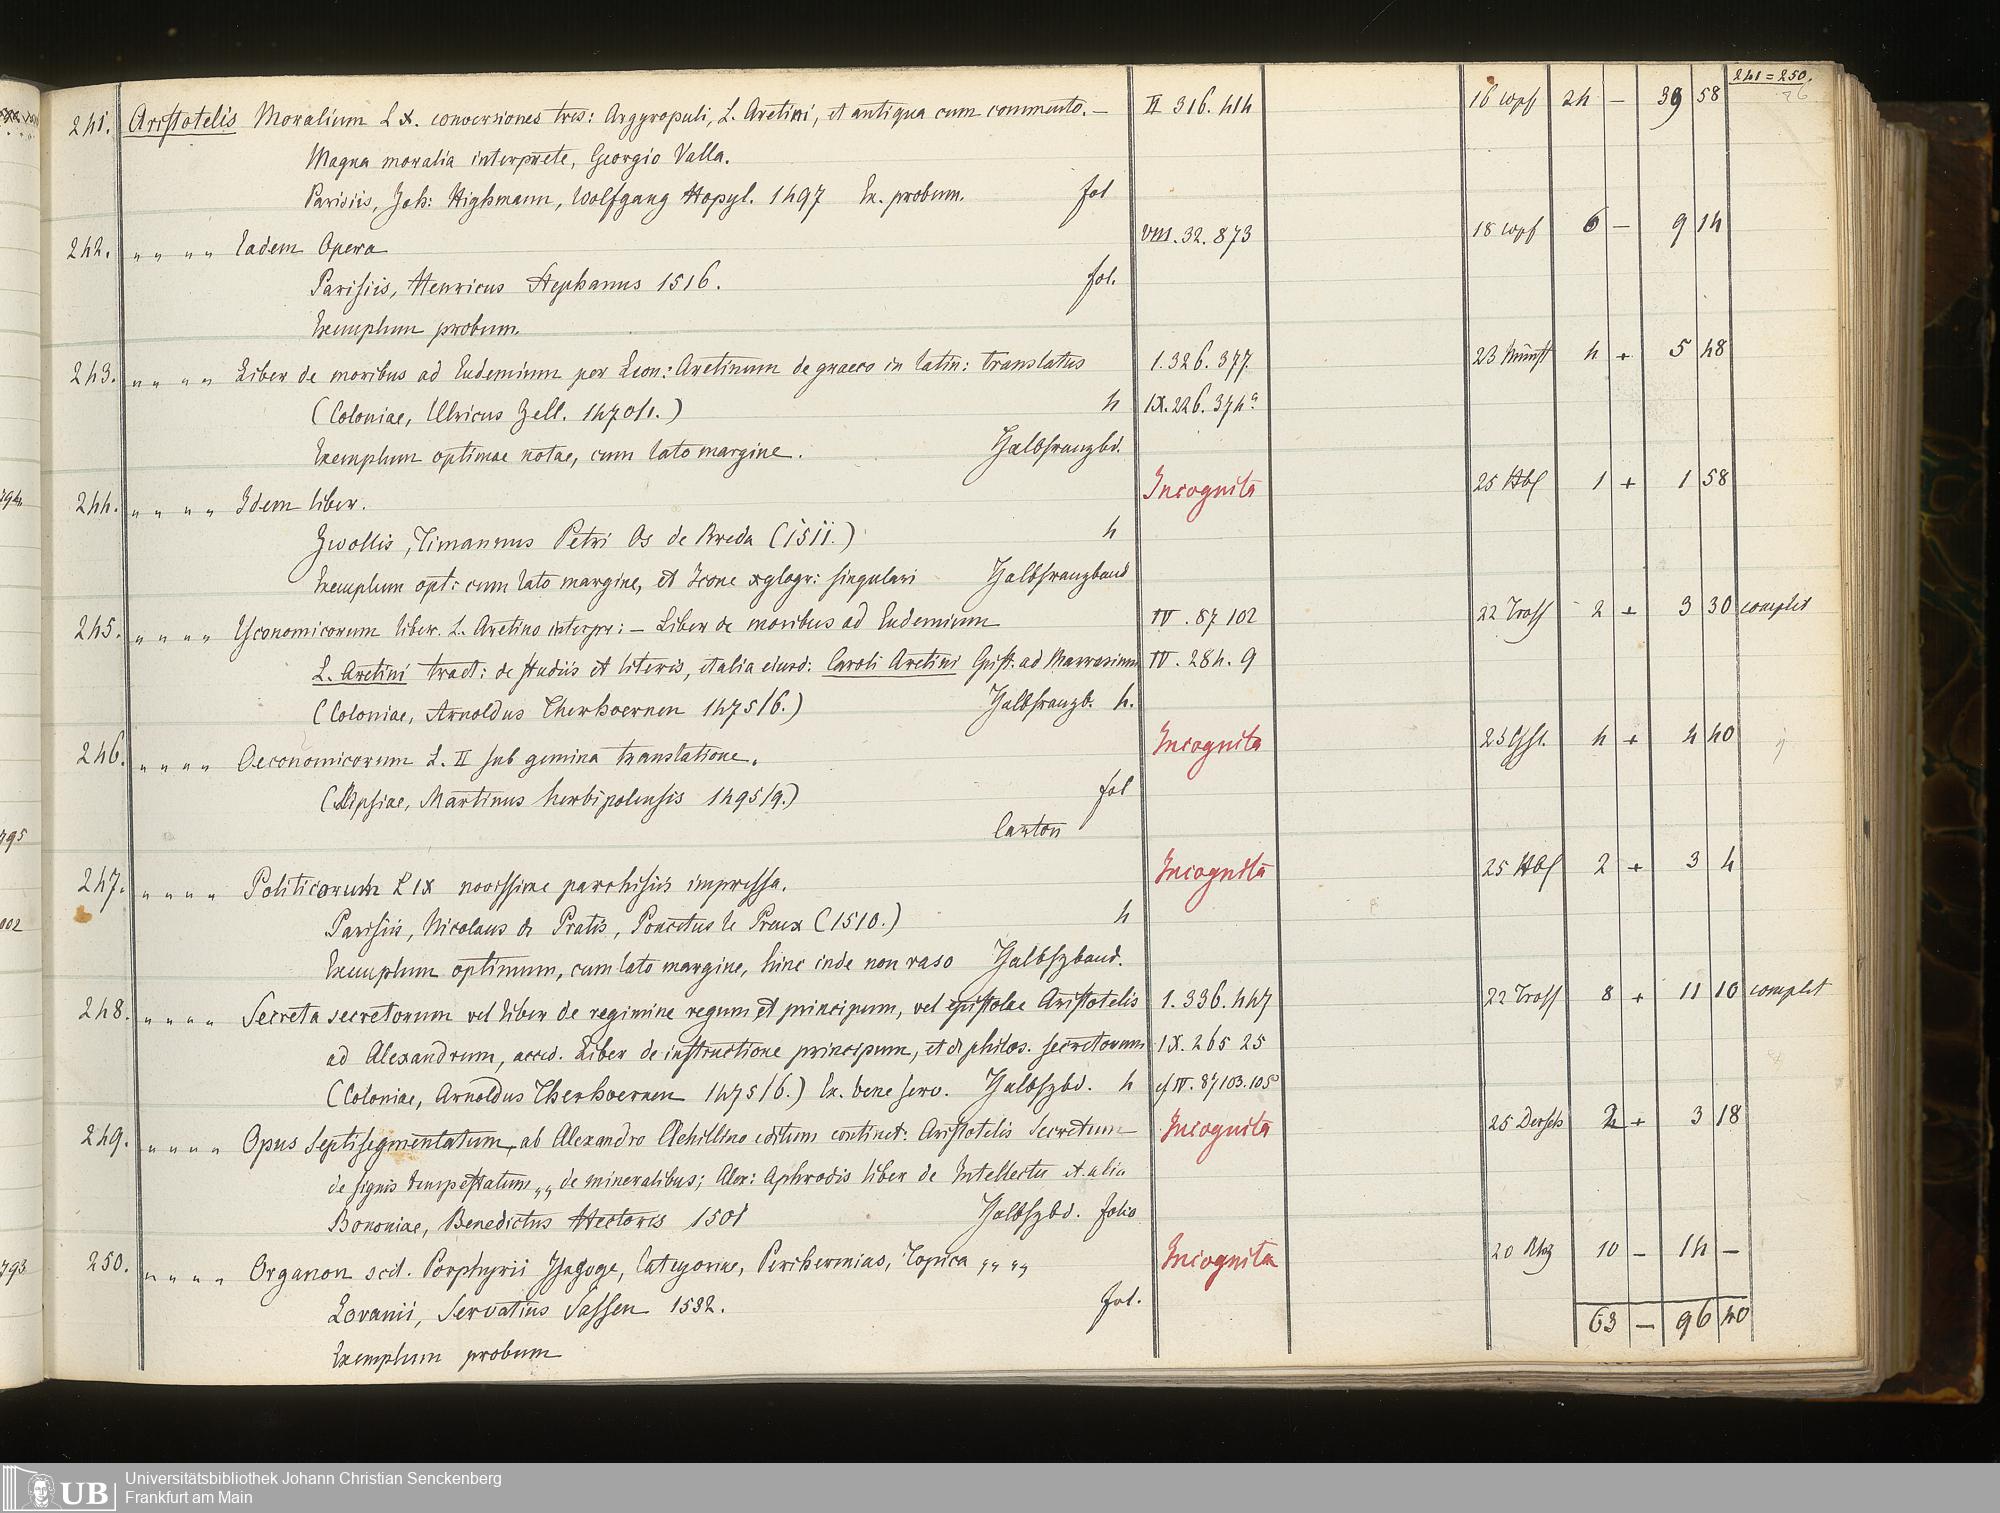 241 = 250.
76
241. Aristotelis Moralium L X. conversiones tres: Argyropuli, L. Aretini, et antiqua cum commento. — II 316. 414 16 wpf 24 — 39 58
Magna moralia interprete, Georgio Valla.
Parisiis, Joh: Highmann, Wolfgang Hopyl. 1497 Ex. probum. fol
242. " " " " Eadem Opera VIII. 32. 873 18 wpf 6 — 9 14
Parisiis, Henricus Stephanus 1516. fol.
Exemplum probum.
243. " " " " Liber de moribus ad Eudemium per Leon: Aretinum de graeco in latin: translatus 1. 326. 377. 23 4 + 5 48
(Coloniae, Ulricus Zell. 1470/1.) 4 IX. 226. 374a
Exemplum optimae notae, cum lato margine. Halbfranzbd.
244. " " " " Idem liber. Incognita 25 1 + 1 58
Zwollis, Timannus Petri Os de Breda (1511.) 4
Exemplum opt: cum lato margine, et Icone xylogr: singulari Halbfranzband
245. " " " " Yconomicorum liber. L. Aretino interpr: — Liber de moribus ad Eudemium IV. 87 102 22 Tross 2 + 3 30 complet
L. Aretini tract: de studiis et literis, et alia eiusd: Caroli Aretini Epist. ad Marrasium IV. 284. 9
(Coloniae, Arnoldus Therhoernen 1475/6.) Halbfranzb. 4.
246. " " " " Oeconomicorum L. II sub gemina translatione. Incognita 4 + 4 40
(Lipsiae, Martinus herbipolensis 1495/9.) fol
Carton
247. " " " " Politicorum L IX novissime parrhisiis impressa. Incognita 25 2 + 3 4
Parisiis, Nicolaus de Pratis, Poncetus le Preux (1510.) 4
Exemplum optimum, cum lato margine, hinc inde non raso Halbfzband.
248. " " " " Secreta secretorum vel liber de regimine regum et principum, vel epistolae Aristotelis 1. 336. 447 22 Tross 8 + 11 10 complet
ad Alexandrum, acced. Liber de instructione principum, et de philos. secretorum IX. 265 25
(Coloniae, Arnoldus Therhoernen 1475/6.) Ex. bene serv. Halbfzbd. 4 cf IV. 87 103. 105
249. " " " " Opus Septisegmentatum, ab Alexandro Achillino editum continet: Aristotelis Secretum Incognita 25 2 + 3 18
de signis tempestatum „ „ de mineralibus; Alex: Aphrodis liber de Intellectu et alia
Bononiae, Benedictus Hectoris 1501 Halbfzbd. folio
250. " " " " Organon scil. Porphyrii Ysagoge, Categoriae, Perihermias, Topica „ „ „ „ Incognita 20 10 — 14 —
Lovanii, Servatius Sassen 1532. fol.
Exemplum probum
63 — 96 40
UB
Universitätsbibliothek Johann Christian Senckenberg
Frankfurt am Main